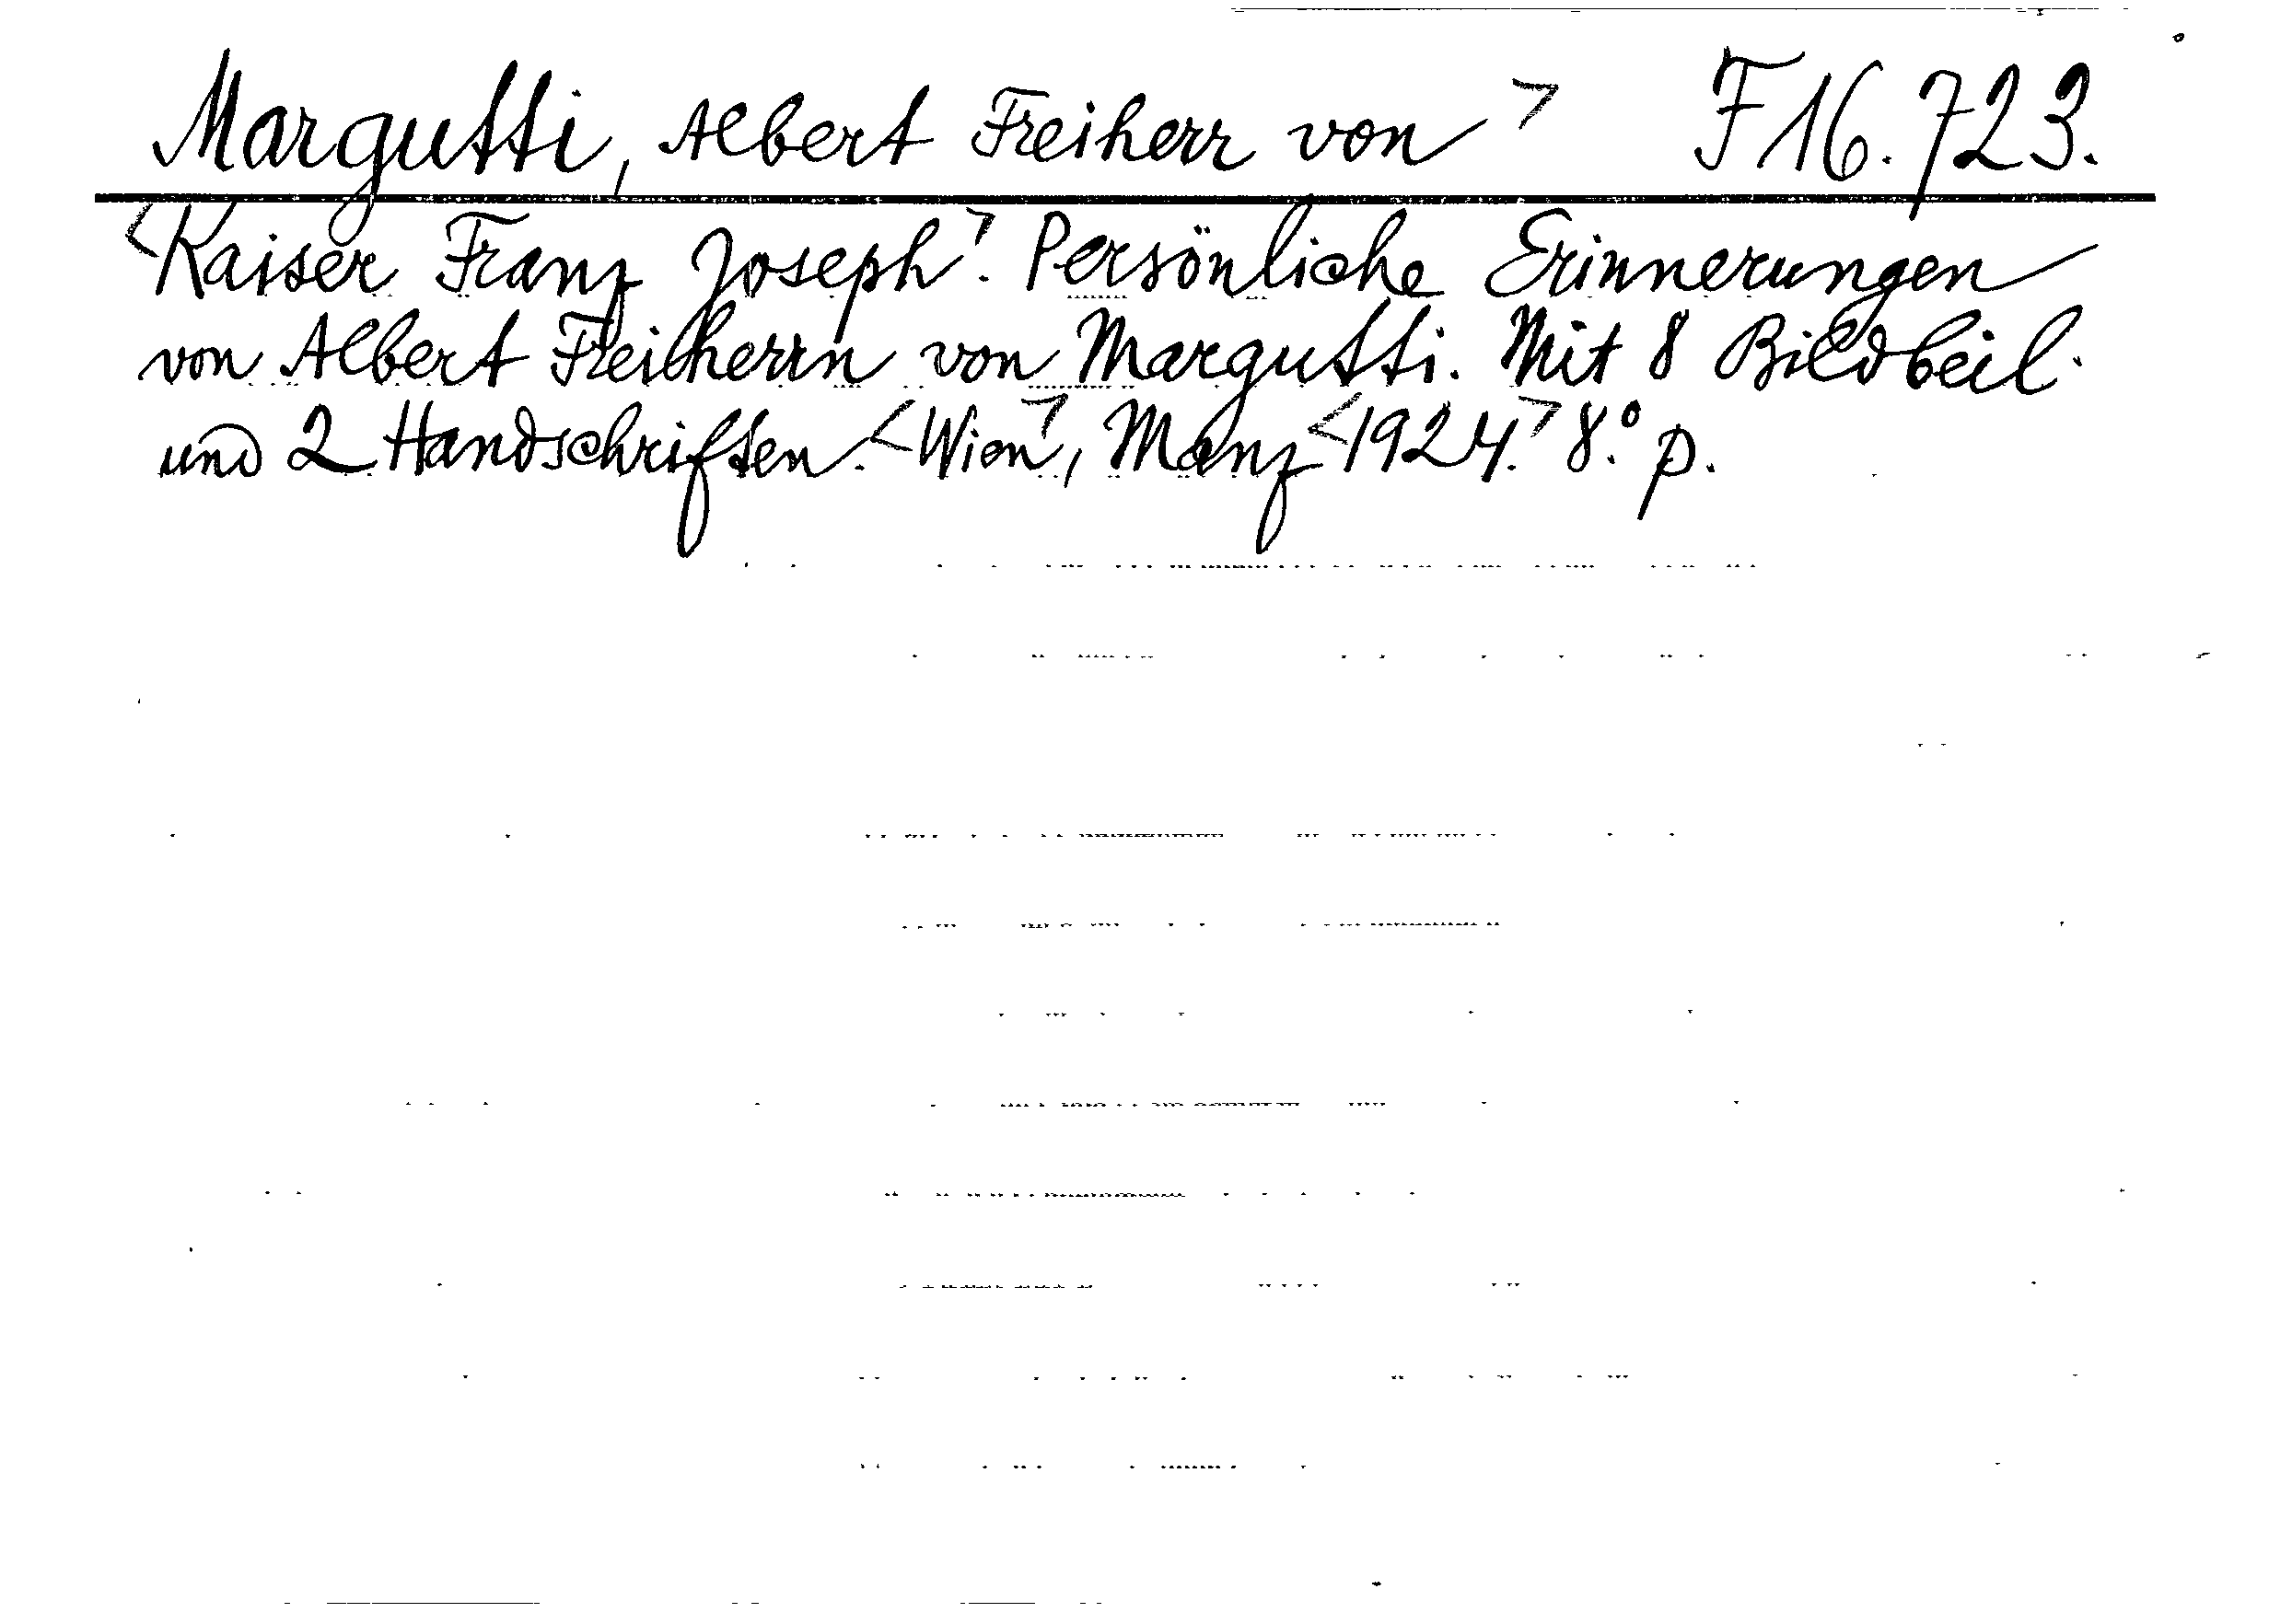 Margutti, Albert Freiherr von> F 16.723.
<Kaiser Franz Joseph>. Persönliche Erinnerungen
von Albert Freiherrn von Margutti. Mit 8 Bildbeil.
und 2 Handschriften. <Wien>, Manz <1924.> 8.° p.